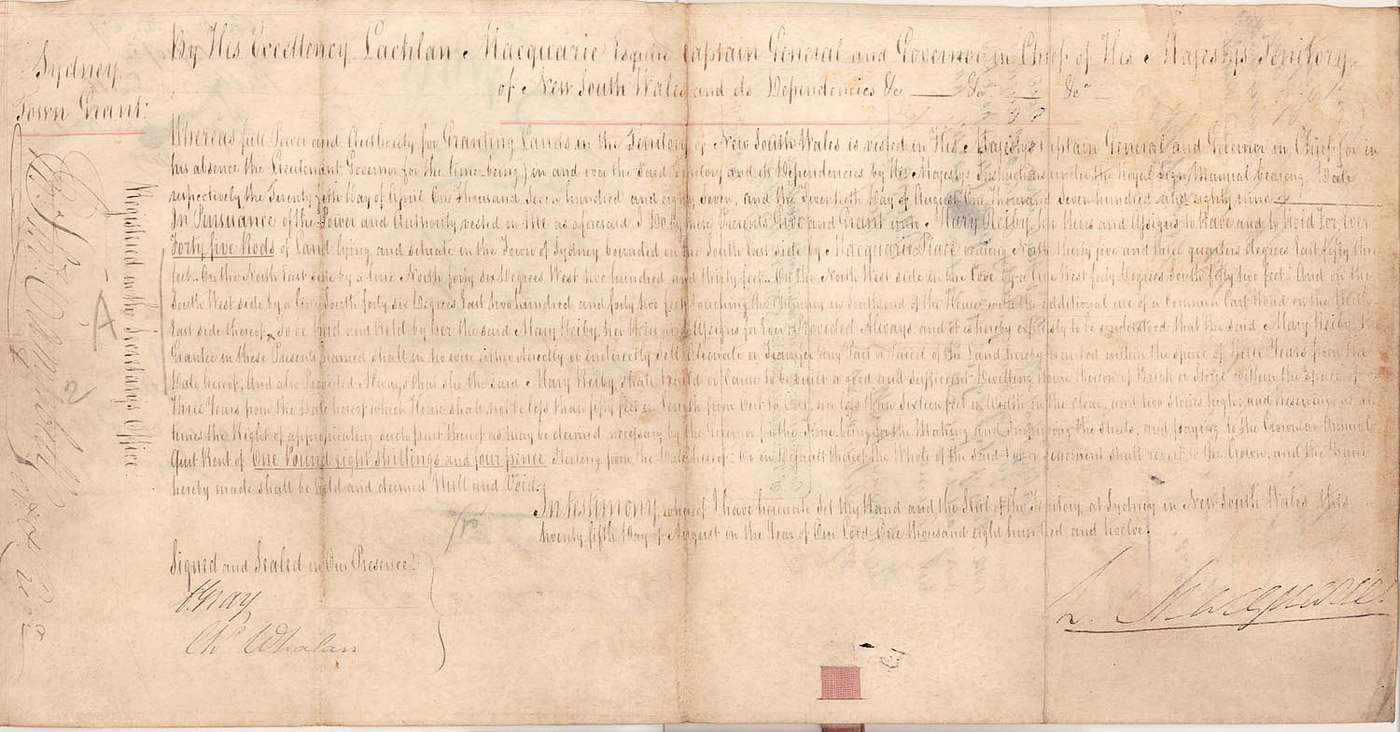 Sydney
Town Grant:
By His Excellency Lachlan Macquarie Esquire Captain General and Governor in Chief of His Majesty's Territory
of New South Wales and its Dependencies &c &c &c
Whereas full Power and Authority for Granting Lands in the Territory of New South Wales is vested in His Majesty's Captain General and Governor in Chief (or in
his absence the Lieutenant Governor for the time being) in and over the said Territory and its Dependencies by His Majesty's Instructions under the Royal Sign Manual bearing Date
respectively the Twenty fifth Day of April One Thousand Seven hundred and eighty Seven, and the Twentieth Day of August One Thousand Seven hundred and eighty nine
In Pursuance of the Power and Authority vested in Me as aforesaid I Do by these Presents Give and Grant unto Mary Reiby, her Heirs and Assigns to Have and to Hold for Ever
Forty five Rods of Land lying and situate in the Town of Sydney bounded on the South East side by Macquarie Place bearing North thirty five and three quarters degrees East fifty three
feet. On the North East side by a line North forty six Degrees West two hundred and thirty feet. On the North West side in the Cove by a line West forty Degrees South fifty two feet. And on the
South West side by a line South forty six Degrees East two hundred and forty two feet touching the Chimney on South end of the House with the additional use of a Common Cart Road on the North
East side thereof, to be Had and Held by her the said Mary Reiby, her Heirs and Assigns for Ever Provided Always and it is hereby expressly to be understood that the said Mary Reiby, the
Grantee in these Presents named shall in no wise either directly or indirectly Sell Alienate or Transfer any Part or Parcel of the Land hereby granted within the space of Three Years from the
Date hereof, And also Provided Always that she the said Mary Reiby shall build or cause to be built a good and sufficient Dwelling House thereon of Brick or Stone within the space of
Three Years from the Date hereof which House shall not be less than fifty feet in Length from Out to Out, nor less than Sixteen feet in Width in the clear, and two Stories high; and Reserving at all
times the Right of appropriating such part thereof as may be deemed necessary by the Governor for the time being for the Making and Improving the Streets, and paying to the Crown an Annual
Quit Rent of One Pound eight shillings and four pence Sterling from the Date hereof: Or in default thereof the Whole of the said Town Tenement shall revert to the Crown, and the Grant
hereby made shall be held and deemed Null and Void.
In testimony whereof I have hereunto Set My Hand and the Seal of the Territory, at Sydney in New South Wales this
twenty fifth Day of August in the Year of Our Lord One thousand eight hundred and twelve.
Signed and Sealed in Our Presence
Chs Whalan
L. Macquarie
Registered in the Secretary's Office
A
2